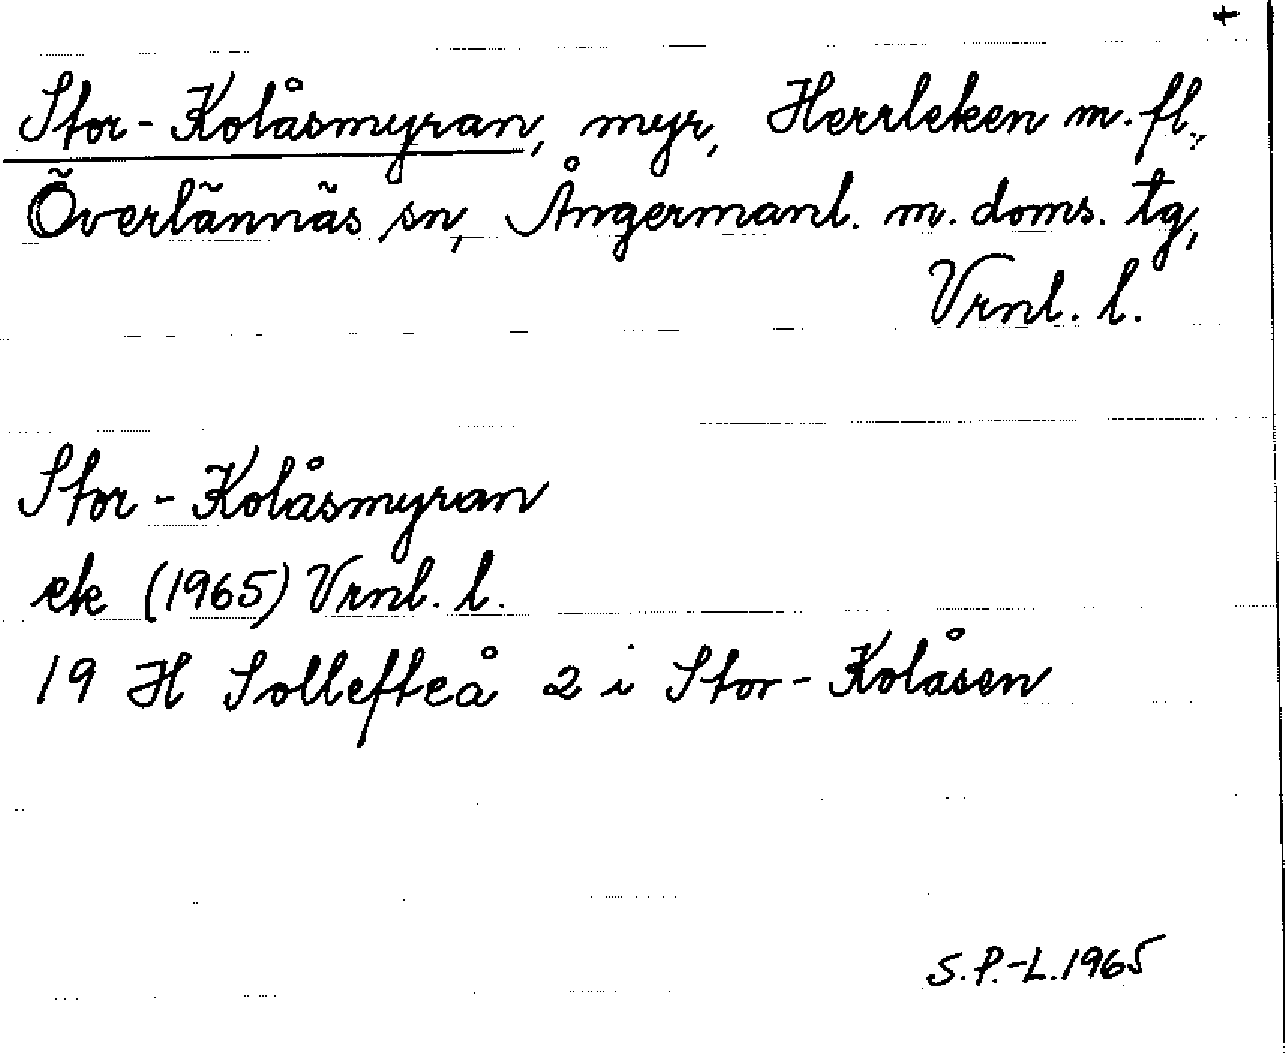 +
Stor-Kolåsmyran, myr, Herrleken m. fl.,
Överlännäs sn, Ångermanl. m. doms. tg,
Vrnl. l.
Stor-Kolåsmyran
ek (1965) Vrnl. l.
19 H Sollefteå 2 i Stor-Kolåsen
S.P.-L. 1965